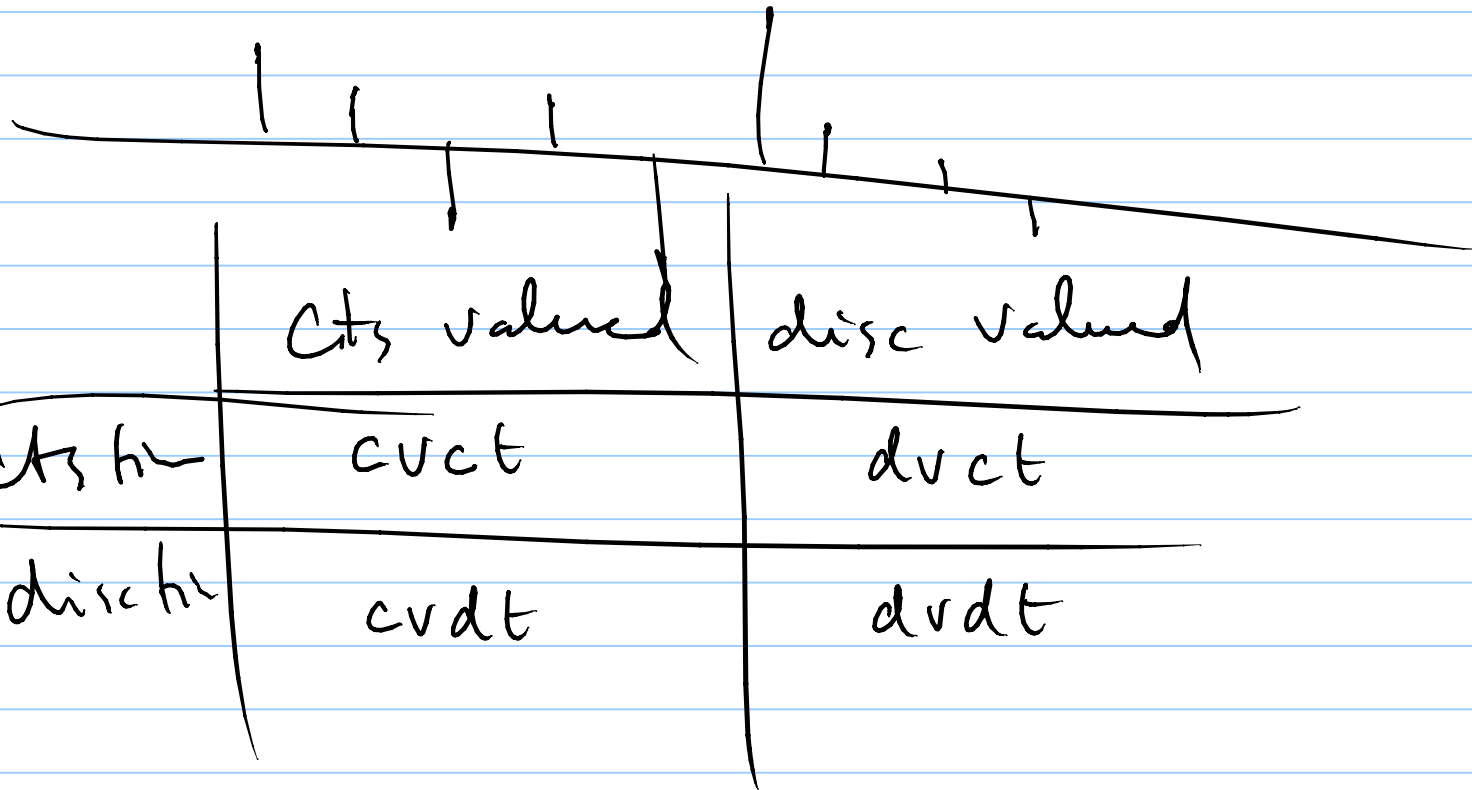 Cts valued disc valued
cts tim cvct dvct
disc tim cvdt dvdt